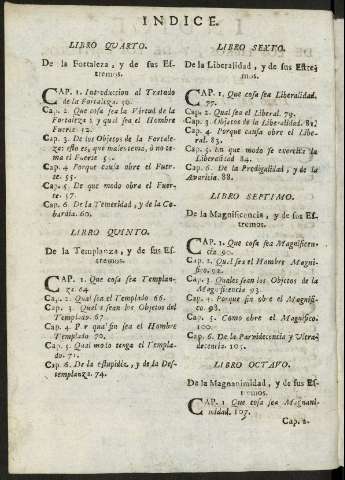 INDICE.
LIBRO QUARTO.
De la Fortaleza, y de sus Es-
tremos.
CAP. 1. Introduccion al Tratado
de la Fortaleza. 50.
Cap. 2. Que cosa sea la Virtud de la
Fortaleza, y qual sea el Hombre
Fuerte. 52.
Cap. 3. De los Objetos de la Fortale-
za: esto es, què males tema, ò no te-
ma el Fuerte. 55.
Cap. 4 Porque causa obre el Fuer-
te. 55.
Cap. 5. De que modo obre el Fuer-
te. 57.
Cap. 6. De la Temeridad, y de la Co-
bardia. 60.
LIBRO QUINTO.
De la Templanza, y de sus Es-
tremos.
CAP. 1. Que cosa sea Templan-
za. 64
Cap. 2. Qual sea el Templado 66.
Cap. 3. Quales sean los Objetos del
Templado. 67.
Cap. 4. Por qual fin sea el Hombre
Templado 70.
Cap. 5. Qual modo tenga el Templa-
do. 71.
Cap. 6. De la estupidez, y de la Des-
templanza. 74.
LIBRO SEXTO.
De la Liberalidad, y de sus Estre-
mos.
CAP. 1. Que cosa sea Liberalidad.
77.
Cap. 2. Qual sea el Liberal. 79.
Cap. 3. Objetos de la Liberalidad. 81.
Cap. 4. Porque causa obre el Libe-
ral. 83.
Cap. 5. En que modo se exercite la
Liberalidad 84.
Cap. 6. De la Prodigalidad, y de la
Avaricia. 88.
LIBRO SEPTIMO.
De la Magnificencia, y de sus Es-
tremos.
CAP. 1. Que cosa sea Magnificen-
cia. 90.
Cap. 2. Qual sea el Hombre Magni-
fico. 92.
Cap. 3. Quales sean los Objetos de la
Magnificencia 93.
Cap. 4. Porque fin obre el Magnifi-
co. 98.
Cap. 5. Como obre el Magnifico.
100.
Cap. 6. De la Parvidecencia y Ultra-
decencia. 105.
LIBRO OCTAVO.
De la Magnanimidad, y de sus Es-
tremos.
CAP. 1. Que cosa sea Magnani-
midad. 107.
Cap. 2.